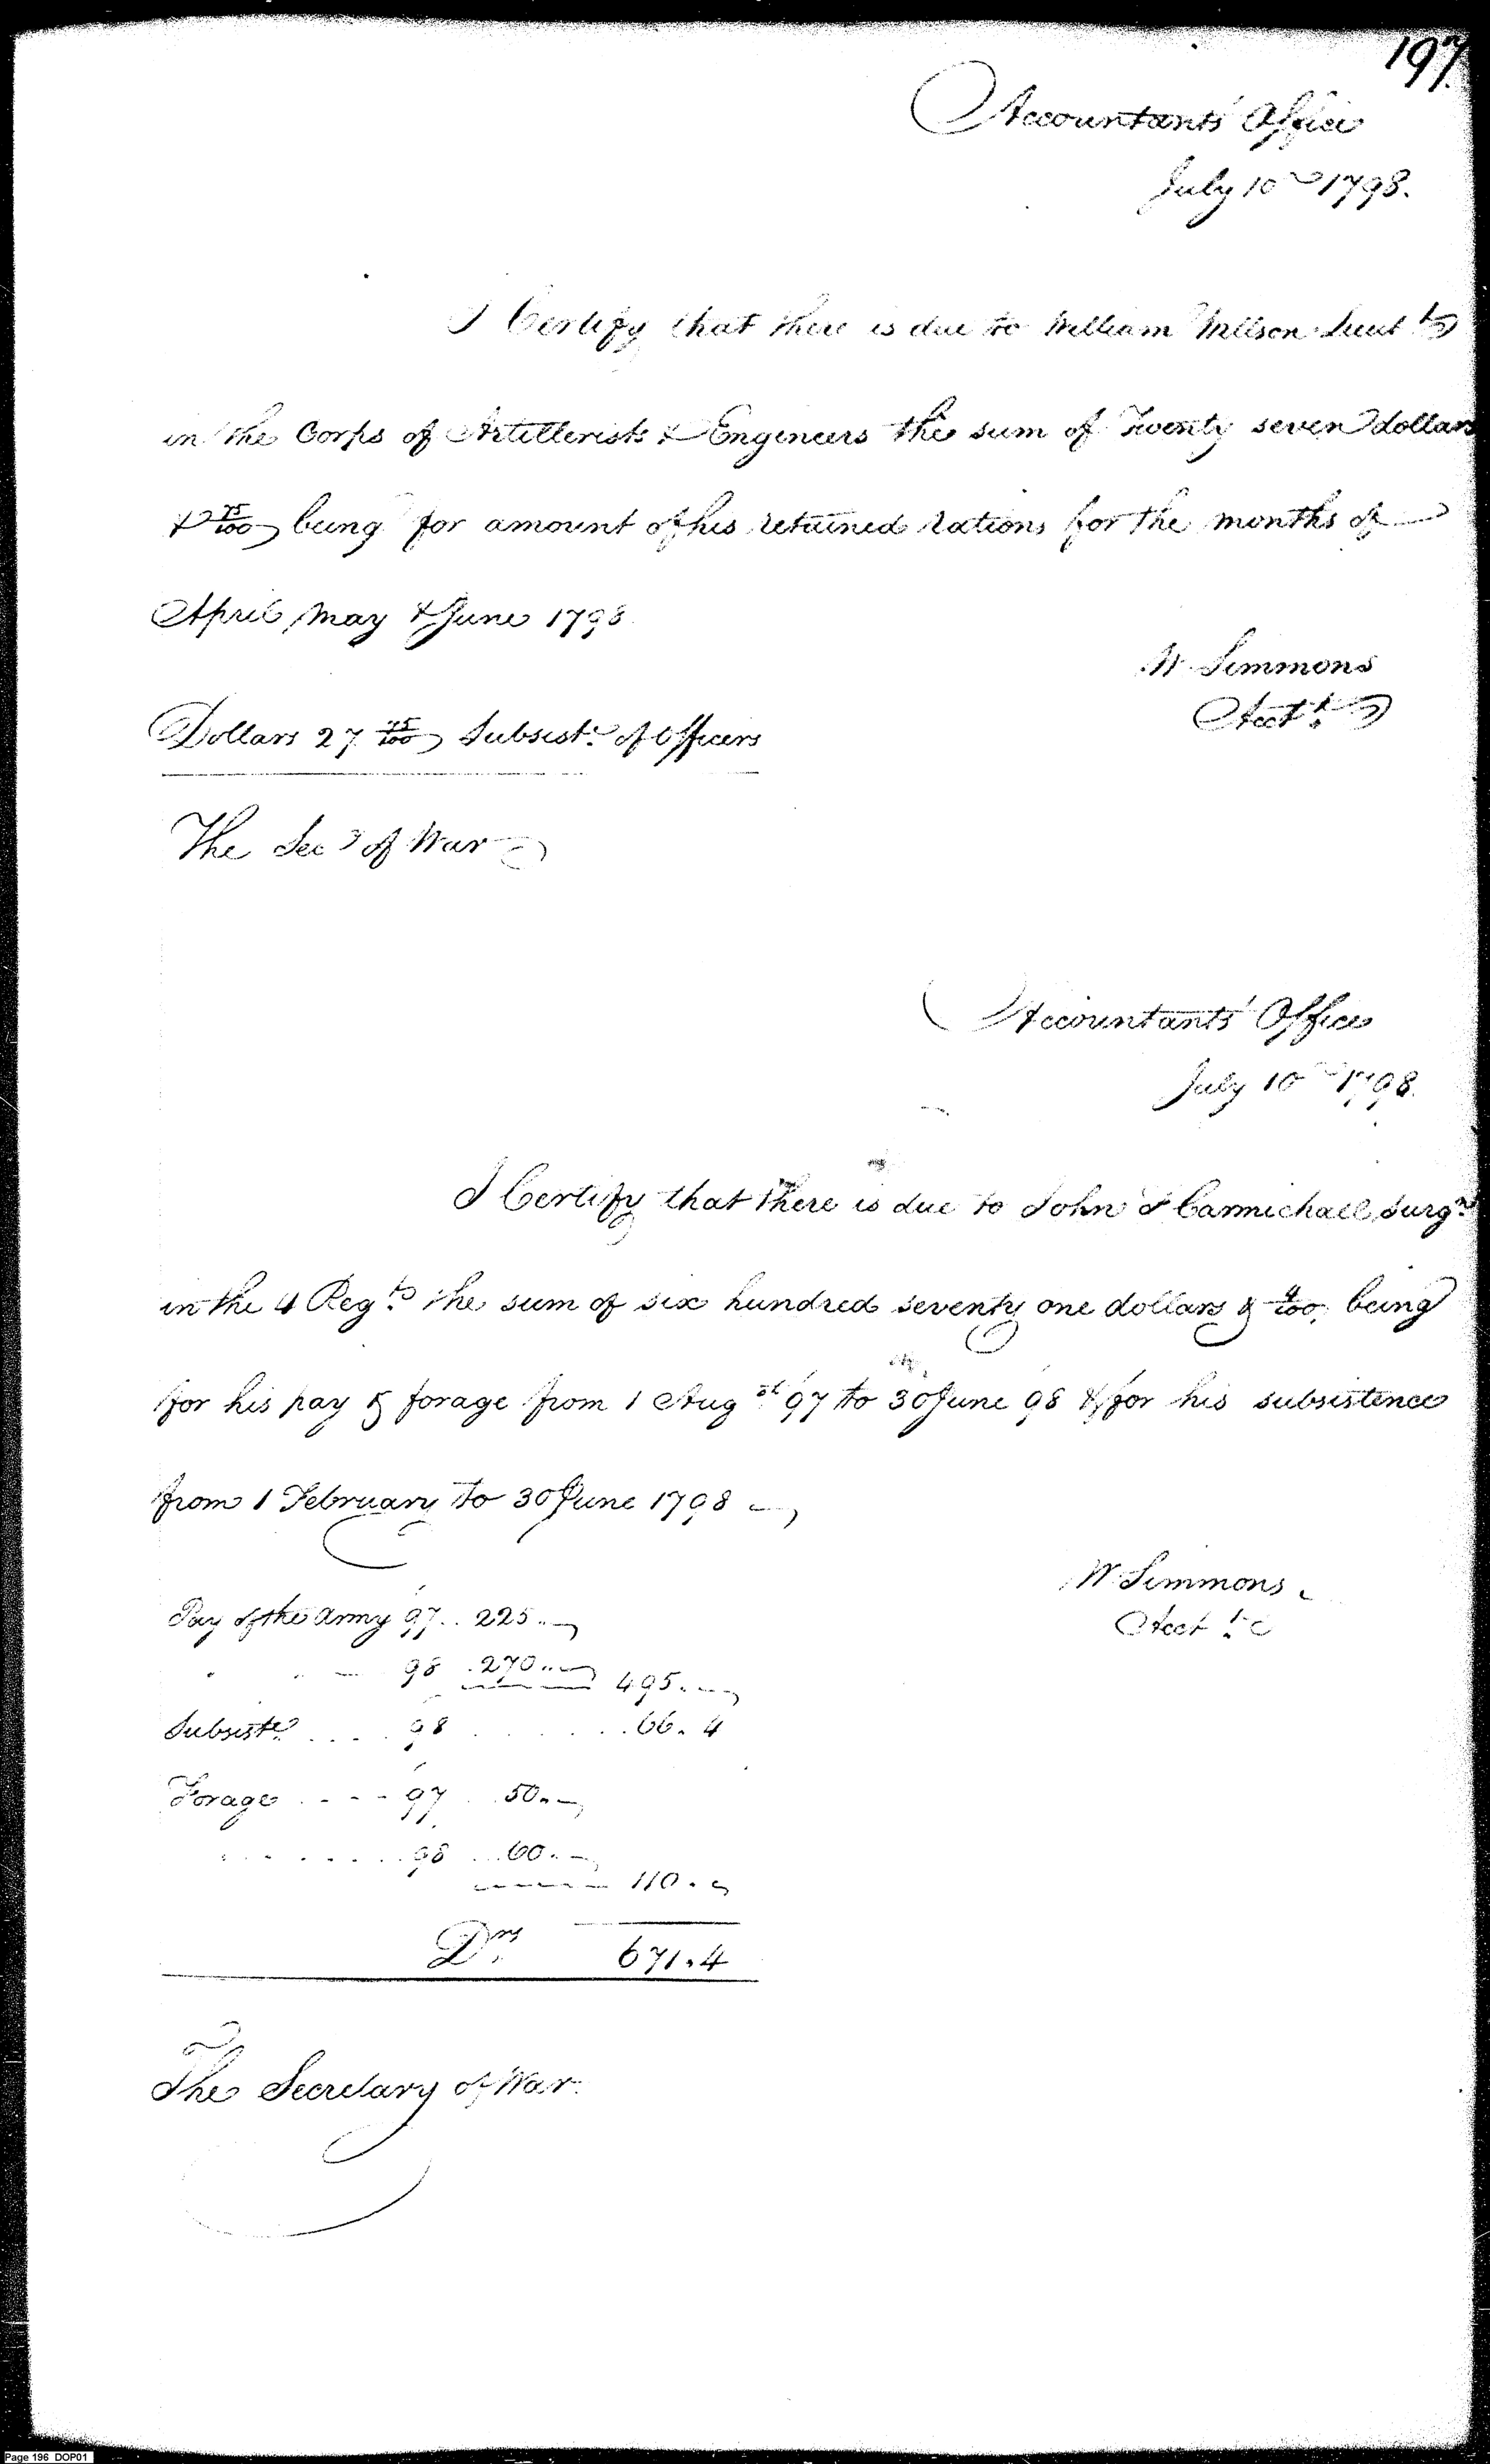 197
Accountants' Office
July 10 1798.
I Certify that there is due to William Willson Lieut t
in the Corps of Artillerists & Engineers the sum of Twenty seven dollars
& 75/100 being for amount of his retained rations for the months of
April May & June 1798
W Simmons
Acct t
Dollars 27 75/100 Subsist e of Officers
The Sec y of War
Accountants' Office
July 10 1798.
I Certify that there is due to John F Carmichael Surg n
in the 4 Reg t the sum of six hundred seventy one dollars & 4/100 being
for his pay & forage from 1 Aug st '97 to 30 June '98 & for his subsistence
from 1 February to 30 June 1798
W Simmons
Acct t
Pay of the Army '97 .. 225 ..
" " 98 . 270 .. 495 .
Subsist e .... 98 ....... 66 . 4
Forage .... '97 .. 50 ..
" ....... 98 ... 60 . 110 .
D rs 671.4
The Secretary of War.
Page 196 DOP01